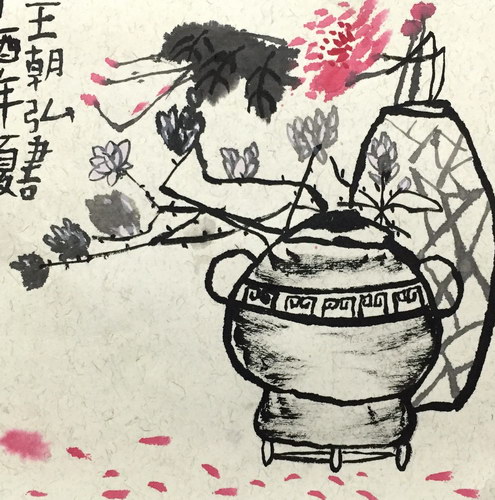 王朝弘書
酉年夏